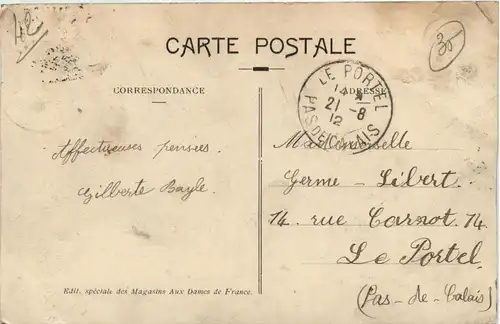 42
35
CARTE POSTALE
CORRESPONDANCE
ADRESSE
LE PORTEL
14
21 - 8
12
PAS DE CALAIS
Affectueuses pensées.
Gilberte Bayle.
Mademoiselle
Germe - Libert.
14. rue Carnot. 14.
Le Portel.
(Pas - de - Calais)
Edit. spéciale des Magasins Aux Dames de France.